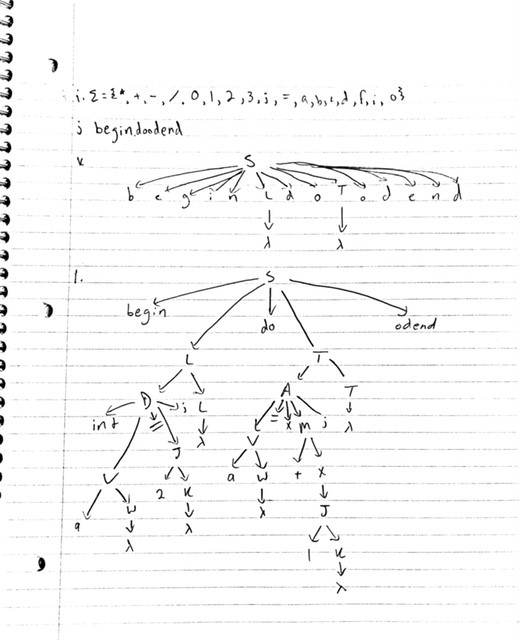 i. Σ={*, +, -, /, 0, 1, 2, 3, ;, =, a, b, c, d, f, i, o}
j begindoodend
k
S
b e g i n L d o T o d e n d
λ λ
l.
S
begin do odend
L T
D ; L A T
int = λ = x M ; λ
J V
V 2 K a W + x
a W λ λ J
λ 1 K
λ